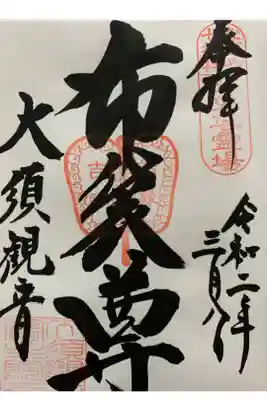 奉拝
令和二年
三月八日
布袋尊
大須観音